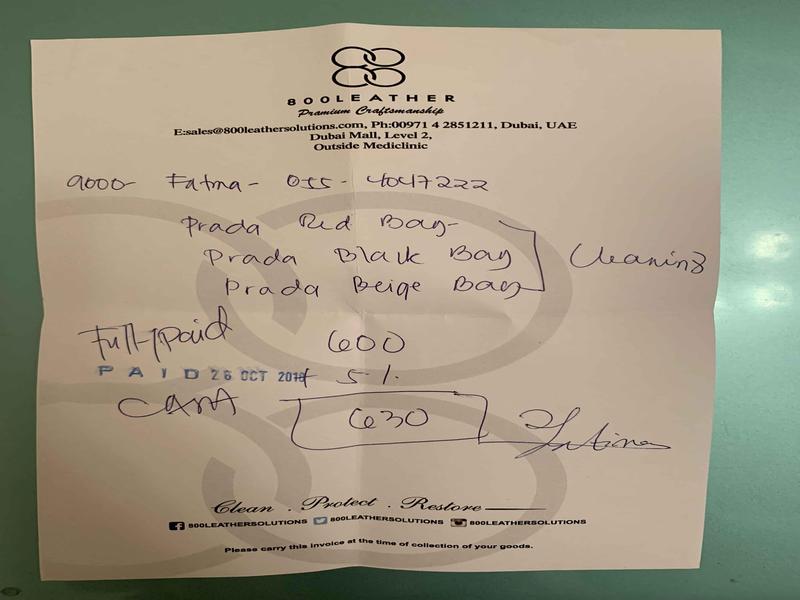 800LEATHER
Premium Craftsmanship
E:sales@800leathersolutions.com, Ph:00971 4 2851211, Dubai, UAE
Dubai Mall, Level 2,
Outside Mediclinic
9000- Fatma - 055 - 4047222
Prada Red Bag-
Prada Black Bag
Prada Beige Bag
Cleaning
Full-/paid
600
PAID 26 OCT 2018
+ 5%.
630
Clean . Protect . Restore
800LEATHERSOLUTIONS 800LEATHERSOLUTIONS 800LEATHERSOLUTIONS
Please carry this invoice at the time of collection of your goods.